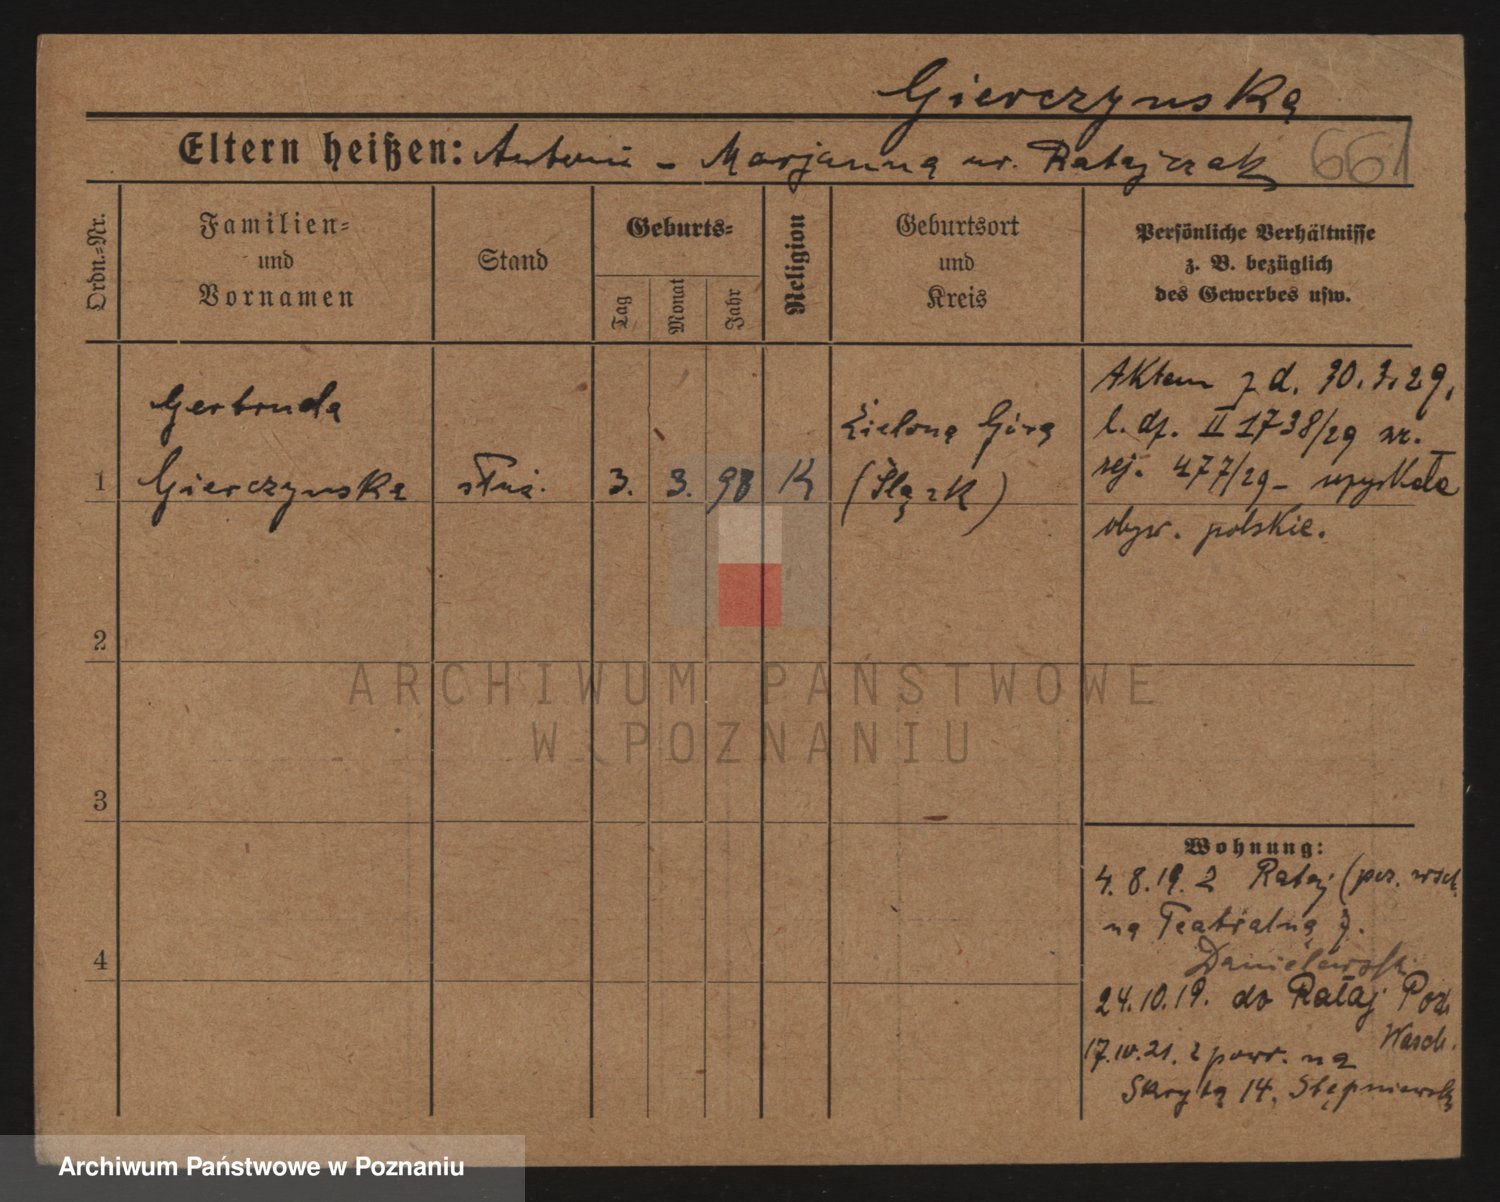 Gierczynska
Eltern heißen: Antoni - Marjanna ur. Ratajczak 661
Ordn.-Nr.
Familien-
und
Vornamen
Stand
Geburts-
Tag
Monat
Jahr
Religion
Geburtsort
und
Kreis
Persönliche Verhältnisse
z. B. bezüglich
des Gewerbes usw.
Gertruda
1 Gierczynska służ. 3. 3. 98 K
Zielona Góra
(Śląsk)
Aktem z d. 30.3.29,
l. dz. II 1738/29 nr.
rej. 477/29 - uzyskała
obyw. polskie.
2
3
4
Wohnung:
4.8.19. z Rataj (poz. wsch.
na Teatralna 7.
Danielewski
24.10.19. do Rataj Poz.
Wsch.
17.10.21. z powr. na
Skryta 14, Stępniewski
ARCHIWUM PAŃSTWOWE
W POZNANIU
Archiwum Państwowe w Poznaniu